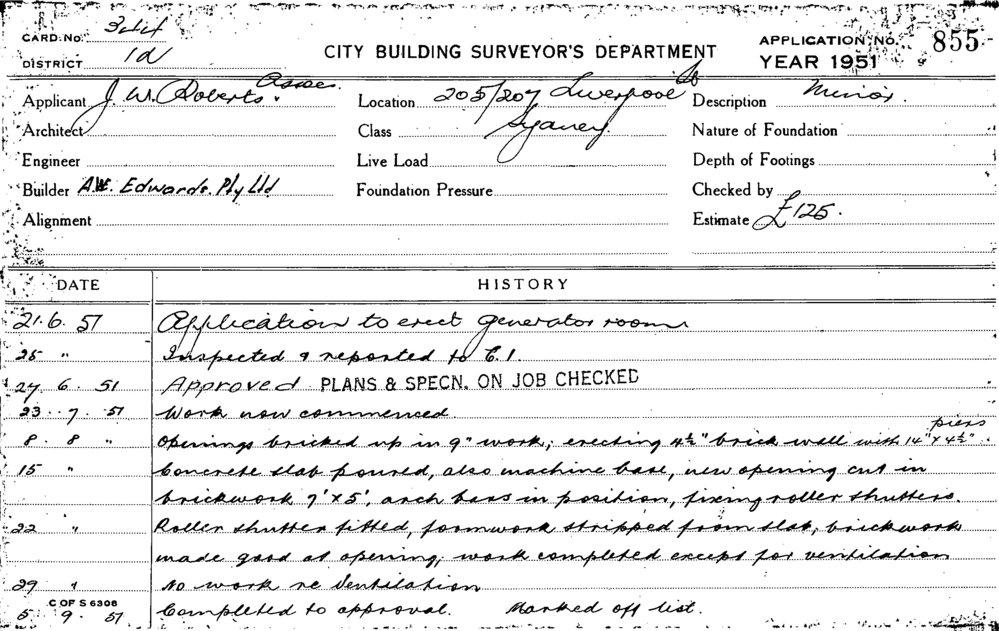 CARD. No. 344
DISTRICT 1d
CITY BUILDING SURVEYOR'S DEPARTMENT
APPLICATION No. 855
YEAR 1951
Applicant J. W. Roberts. Assoc.
Location 205/207 Liverpool St
Sydney.
Description Minor.
Architect
Class
Nature of Foundation
Engineer
Live Load
Depth of Footings
Builder A.W. Edwards. Pty Ltd
Foundation Pressure
Checked by
Alignment
Estimate £125.
DATE HISTORY
21.6.51 Application to erect generator room
25 " Inspected & reported to C.I.
27. 6. 51 Approved PLANS & SPECN. ON JOB CHECKED
23. 7. 51 Work now commenced
8. 8 " Openings bricked up in 9" work; erecting 4½" brick wall with 14" x 4½" piers
15 " Concrete slab poured, also machine base, new opening cut in
brickwork 7' x 5', arch bars in position, fixing roller shutters.
22 " Roller shutter fitted, formwork stripped from slab, brickwork
made good at opening, work completed except for ventilation
29 " No work re Ventilation
C OF S 6308
5. 9. 51 Completed to approval. Marked off list.